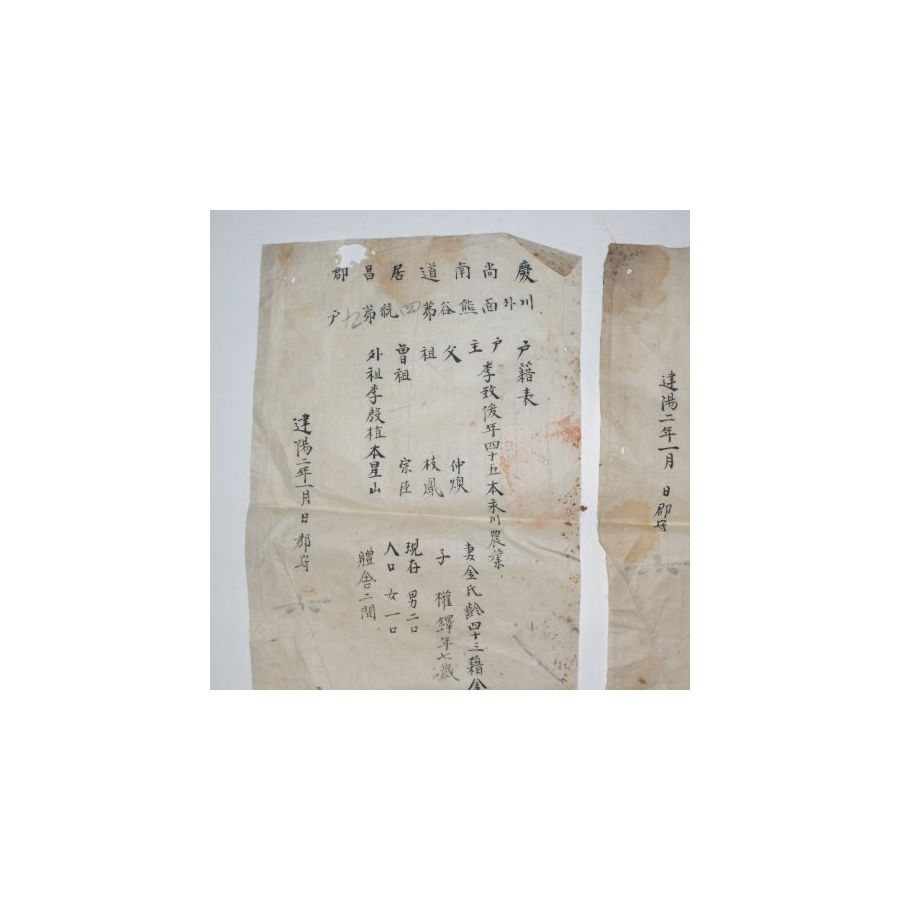 慶尚南道居昌郡
川外面熊谷第四號第九戶
戶籍表
戶主 李致俊年四十五本永川農業
父 仲煥
祖 枝鳳
曾祖 宗臣
外祖李殷植本星山
妻金氏齡四十三籍金
子 權鐸年七歲
現存 男二口
人口 女一口
體舍二間
建陽二年一月 日郡守
建陽二年一月 日郡守